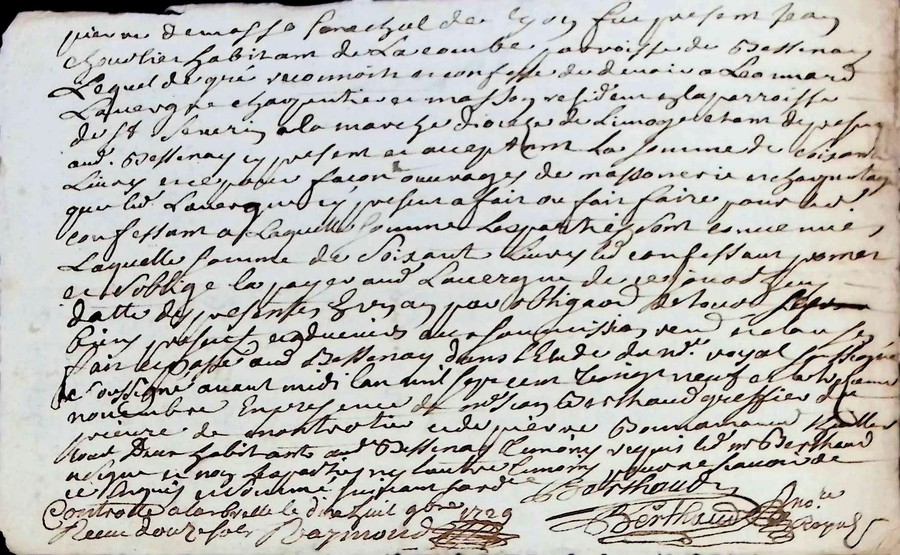 pierre de masso senechal de Lyon fut present Jean
habitant de La combe parroisse de Bessenay
Lequel de gré reconnoit et confesse devoir a Leonnard
Lauergne charpentier et masson resident en la parroisse
de St Severin a la marche dioceze de Limoge etant de present
aud. Bessenay cy present et acceptant La somme de soixante
Livres et ce pour façon ouvrages de massonerie et charpentage
que led. Lauergne cy present a fait ou fait faire pour led.
confessant a Laquelle somme Les parties sont convenües
Laquelle somme de soixante Livres led. confessant promet
et soblige la payer aud. Lauergne
datte des presentes par obligaon. de tous
biens presents et advenirs aux soumissions rend. et clauses
fait et passé aud. Bessenay dans l'Etude du nre. royal
soussigné avant midi lan mil sept cent vingt neuf et le
novembre En presence de me Jean Berthaud greffier du
prieuré de montrotier et de pierre
tous deux habitants aud. Bessenay temoins requis led. me Berthaud
a signé et non la partie ny l'autre temoin pour ne savoir de
ce Enquis et sommé suivant lord.ce
Berthaud
Controllé a larbrelle le dix huit 9bre 1729
Receu douze sols Raymond
Berthaud nore. Royal